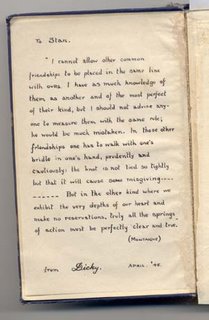 To Stan.
" I cannot allow other common
friendships to be placed in the same line
with ours. I have as much knowledge of
them, as another and of the most perfect
of their kind, but I should not advise any-
one to measure them with the same rule;
he would be much mistaken. In these other
friendships one has to walk with one's
bridle in one's hand, prudently and
cautiously: the knot is not tied so tightly
but that it will cause some misgiving....
...... But in the other kind where we
exhibit the very depths of our heart and
make no reservations, truly all the springs
of action must be perfectly clear and true.
(Montaigne)
from Dicky. April. '42.